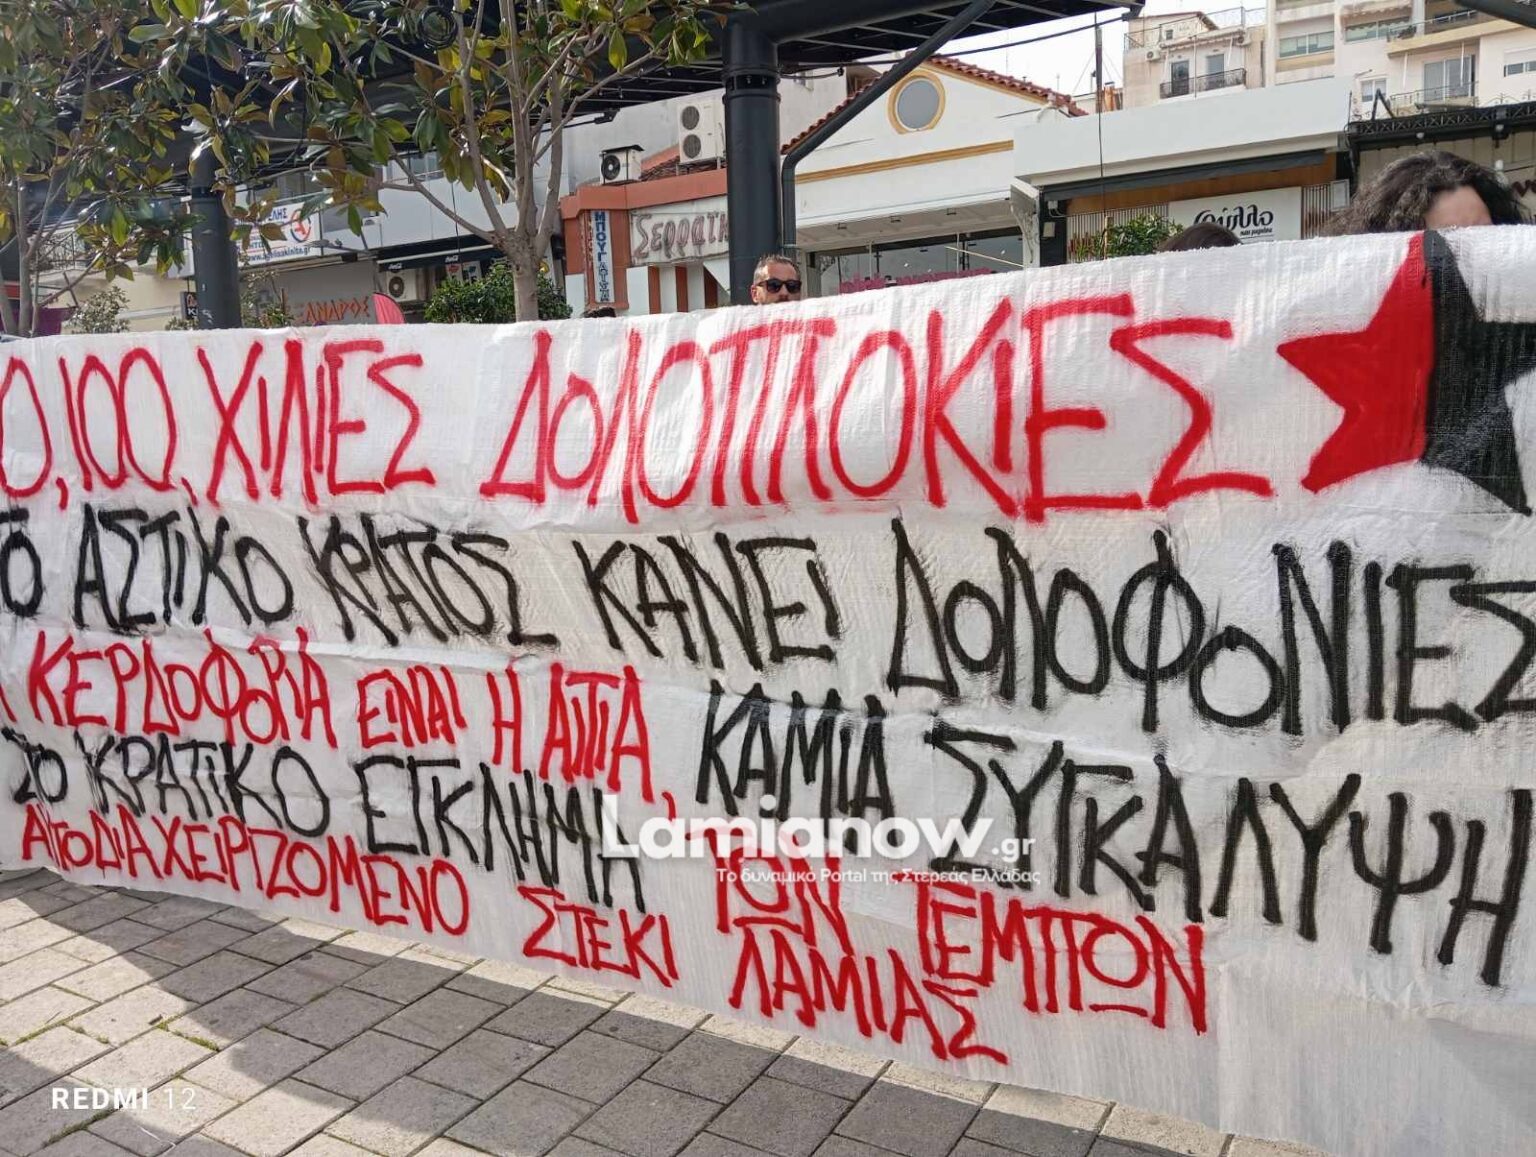 0,100,ΧΙΛΙΕΣ ΔΟΛΟΠΛΟΚΙΕΣ
ΤΟ ΑΣΤΙΚΟ ΚΡΑΤΟΣ ΚΑΝΕΙ ΔΟΛΟΦΟΝΙΕΣ
ΚΕΡΔΟΦΟΡΙΑ ΕΙΝΑΙ Η ΑΙΤΙΑ, ΚΑΜΙΑ ΣΥΓΚΑΛΥΨΗ
ΣΤΟ ΚΡΑΤΙΚΟ ΕΓΚΛΗΜΑ ΤΩΝ ΤΕΜΠΩΝ
ΑΥΤΟΔΙΑΧΕΙΡΙΖΟΜΕΝΟ ΣΤΕΚΙ ΛΑΜΙΑΣ
Lamianow.gr
Το δυναμικό Portal της Στερεάς Ελλάδας
REDMI 12
φύλλο
ΜΠΟΥΓΑΤΣΑ